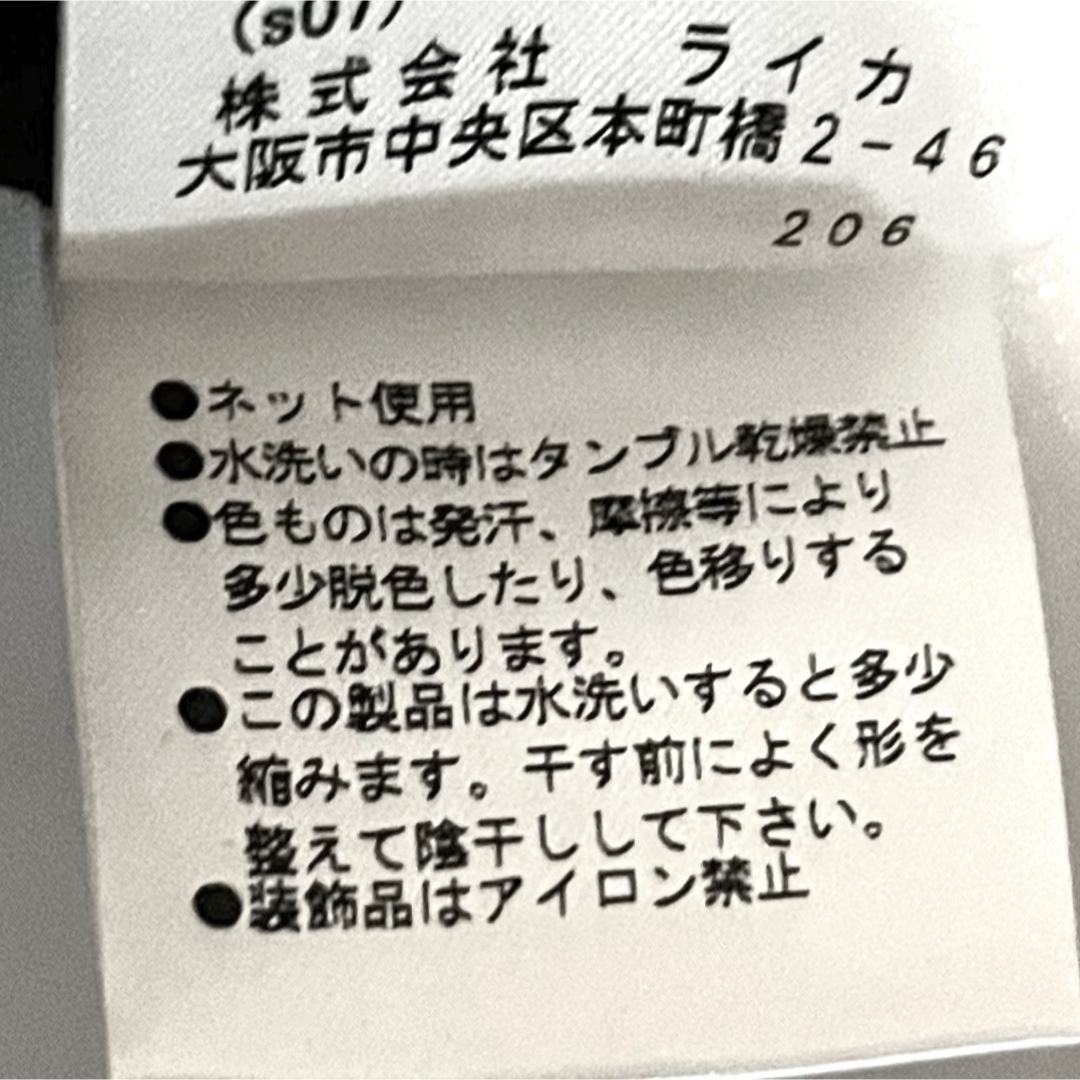 (s01)
株式会社 ライカ
大阪市中央区本町橋2-46
206
●ネット使用
●水洗いの時はタンブル乾燥禁止
●色ものは発汗、摩擦等により
多少脱色したり、色移りする
ことがあります。
●この製品は水洗いすると多少
縮みます。干す前によく形を
整えて陰干しして下さい。
●装飾品はアイロン禁止